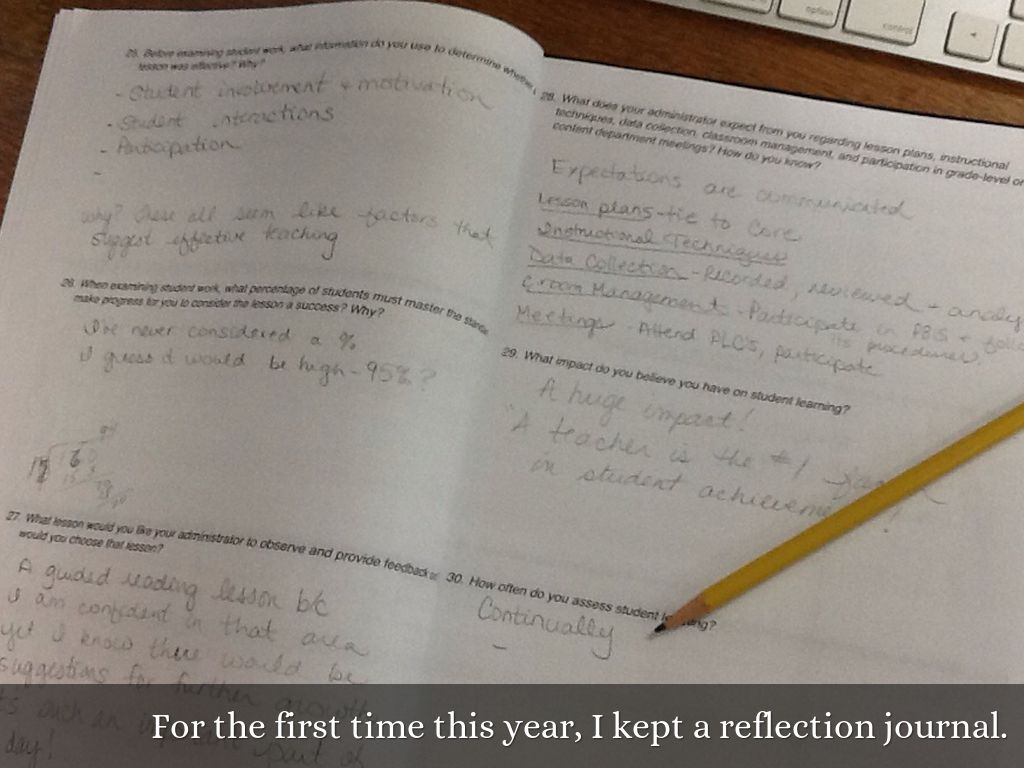 25. Before examining student work, what information do you use to determine whether
lesson was effective? Why?
- Student involvement + motivation
- Student interactions
- Participation
-
why? These all seem like factors that
suggest effective teaching
26. When examining student work, what percentage of students must master the
make progress for you to consider the lesson a success? Why?
I've never considered a %
I guess it would be high - 95%?
27. What lesson would you like your administrator to observe and provide feedback
would you choose that lesson?
A guided reading lesson b/c
I am confident in that area
yet I know there would be
suggestions for further growth
such an important part of
day!
28. What does your administrator expect from you regarding lesson plans, instructional
techniques, data collection, classroom management, and participation in grade-level or
content department meetings? How do you know?
Expectations are communicated
Lesson plans - tie to Core
Instructional Techniques
Data Collection - Recorded, reviewed + analy
C room Management - Participate in PBIS + follo
its procedures
Meetings - Attend PLC's, participate
29. What impact do you believe you have on student learning?
A huge impact!
"A teacher is the #1
in student achieveme !
30. How often do you assess student le ing?
Continually
-
option
control
For the first time this year, I kept a reflection journal.